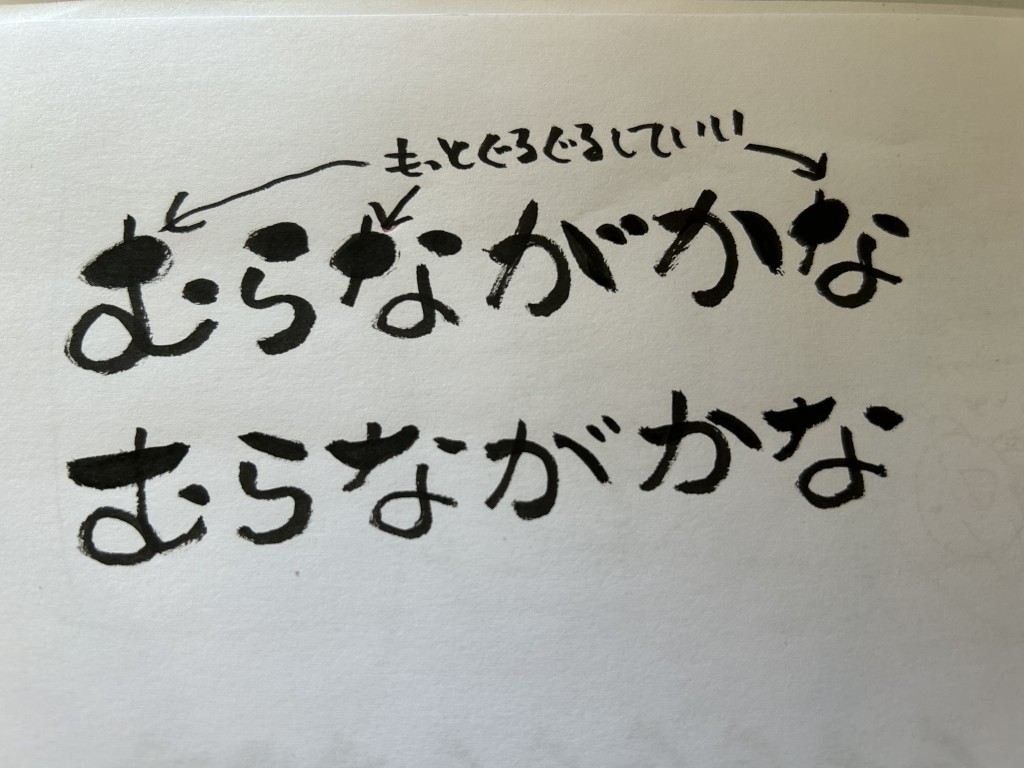 もっとぐるぐるしていい
むらながかな
むらながかな